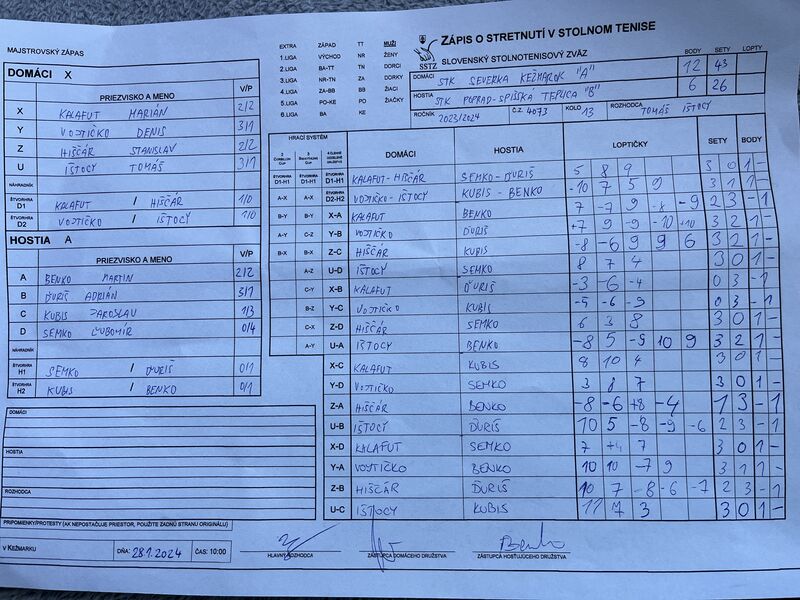 MAJSTROVSKÝ ZÁPAS
DOMÁCI X
PRIEZVISKO A MENO V/P
X KALAFUT MARIÁN 2/2
Y VOJTIČKO DENIS 3/1
Z HIŠČÁR STANISLAV 2/2
U IŠTOCY TOMÁŠ 3/1
NÁHRADNÍK
ŠTVORHRA D1 KALAFUT / HIŠČÁR 1/0
ŠTVORHRA D2 VOJTIČKO / IŠTOCY 1/0
HOSTIA A
PRIEZVISKO A MENO V/P
A BENKO MARTIN 2/2
B ĎURIŠ ADRIÁN 3/1
C KUBIS JAROSLAV 1/3
D SEMKO ĽUBOMÍR 0/4
NÁHRADNÍK
ŠTVORHRA H1 SEMKO / ĎURIŠ 0/1
ŠTVORHRA H2 KUBIS / BENKO 0/1
DOMÁCI
HOSTIA
ROZHODCA
PRIPOMIENKY/PROTESTY (AK NEPOSTAČUJE PRIESTOR, POUŽITE ZADNÚ STRANU ORIGINÁLU)
V KEŽMARKU DŇA: 28.1.2024 ČAS: 10:00
EXTRA ZÁPAD TT MUŽI
1.LIGA VÝCHOD NR ŽENY
2.LIGA BA-TT TN DORCI
3.LIGA NR-TN ZA DORKY
4.LIGA ZA-BB BB ŽIACI
5.LIGA PO-KE PO ŽIAČKY
6.LIGA BA KE
SSTZ
ZÁPIS O STRETNUTÍ V STOLNOM TENISE
SLOVENSKÝ STOLNOTENISOVÝ ZVÄZ BODY SETY LOPTY
DOMÁCI STK SEVERKA KEŽMAROK "A" 12 43
HOSTIA STK POPRAD-SPIŠSKÁ TEPLICA "B" 6 26
ROČNÍK 2023/2024 Č.Z. 4073 KOLO 13 ROZHODCA TOMÁŠ IŠTOCY
HRACÍ SYSTÉM DOMÁCI HOSTIA LOPTIČKY SETY BODY
ŠTVORHRA D1-H1 ŠTVORHRA D1-H1 ŠTVORHRA D1-H1 KALAFUT-HIŠČÁR SEMKO-ĎURIŠ 5 8 9 3 0 1 -
A-X A-X ŠTVORHRA D2-H2 VOJTIČKO-IŠTOCY KUBIS-BENKO -10 7 5 9 3 1 1 -
B-Y B-Y X-A KALAFUT BENKO 7 -7 9 -8 -9 2 3 - 1
A-Y C-Z Y-B VOJTIČKO ĎURIŠ +7 9 -9 -10 +10 3 2 1 -
B-X Z-C HIŠČÁR KUBIS -8 -6 9 9 6 3 2 1 -
A-Z U-D IŠTOCY SEMKO 8 7 4 3 0 1 -
C-Y X-B KALAFUT ĎURIŠ -3 -6 -4 0 3 - 1
B-Z Y-C VOJTIČKO KUBIS -5 -6 -9 0 3 - 1
C-X Z-D HIŠČÁR SEMKO 6 3 8 3 0 1 -
A-Y U-A IŠTOCY BENKO -8 5 -9 10 9 3 2 1 -
X-C KALAFUT KUBIS 8 10 4 3 0 1 -
Y-D VOJTIČKO SEMKO 3 8 7 3 0 1 -
Z-A HIŠČÁR BENKO -8 -6 +8 -4 1 3 - 1
U-B IŠTOCY ĎURIŠ 10 5 -8 -9 -6 2 3 - 1
X-D KALAFUT SEMKO 7 +4 7 3 0 1 -
Y-A VOJTIČKO BENKO 10 10 -7 9 3 1 1 -
Z-B HIŠČÁR ĎURIŠ 10 7 -8 -6 -7 2 3 - 1
U-C IŠTOCY KUBIS 11 7 3 3 0 1 -
Benko
HLAVNÝ ROZHODCA ZÁSTUPCA DOMÁCEHO DRUŽSTVA ZÁSTUPCA HOSŤUJÚCEHO DRUŽSTVA